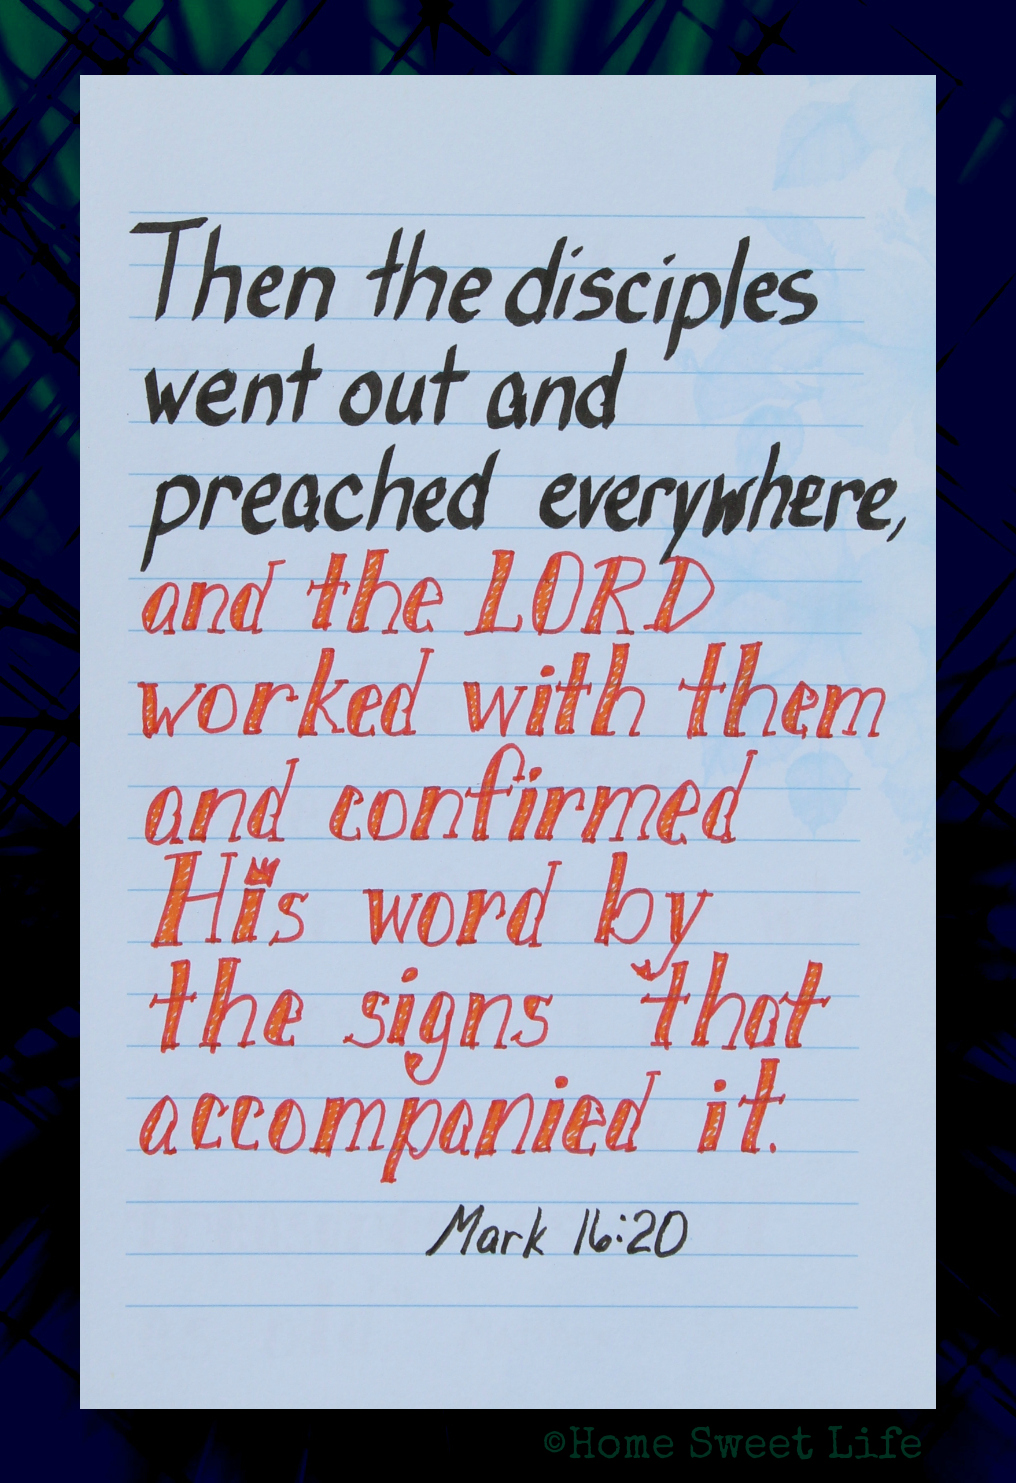 Then the disciples
went out and
preached everywhere,
and the LORD
worked with them
and confirmed
His word by
the signs that
accompanied it.
Mark 16:20
©Home Sweet Life